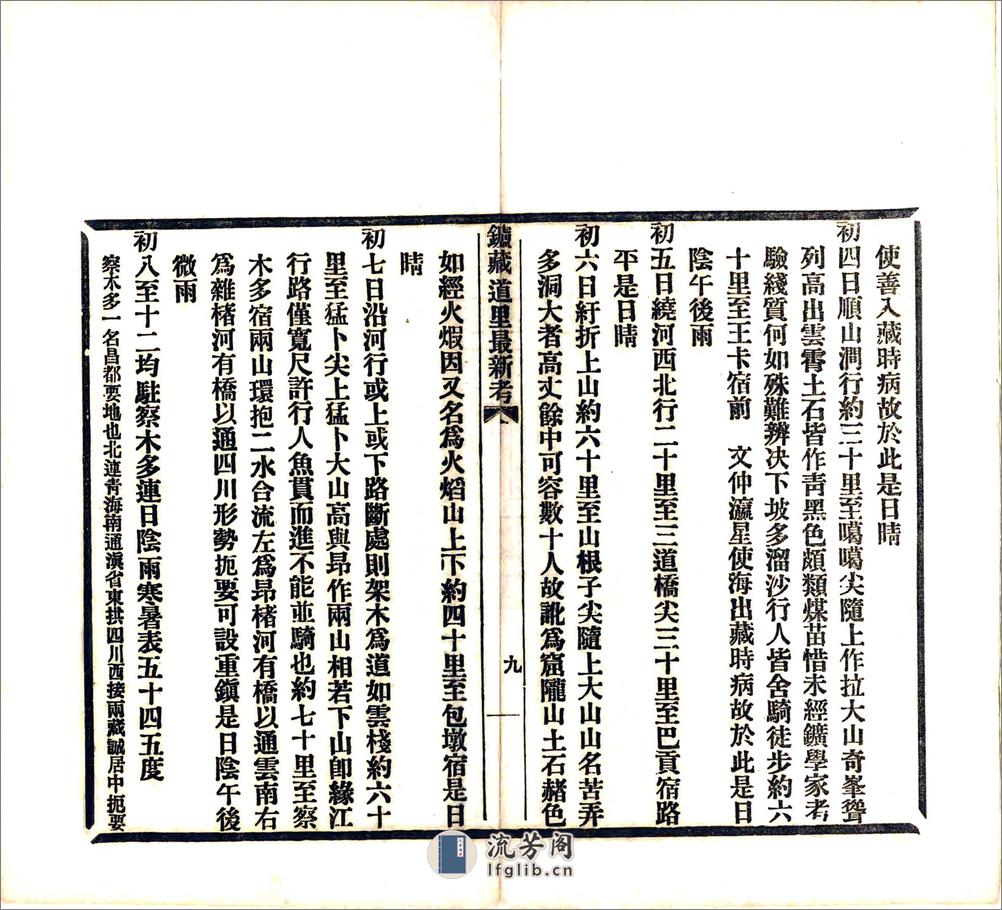 使善入藏時病故於此是日晴
初四日順山澗行約三十里至噶噶尖隨上作拉大山奇峯聳
列高出雲霄土石皆作靑黑色頗類煤苗惜未經鑛學家考
驗綫質何如殊難辨决下坡多溜沙行人皆舍騎徒步約六
十里至王卡宿前　文仲瀛星使海出藏時病故於此是日
陰午後雨
初五日繞河西北行二十里至三道橋尖三十里至巴貢宿路
平是日晴
初六日紆折上山約六十里至山根子尖隨上大山山名苦弄
多洞大者高丈餘中可容數十人故訛爲窟隴山土石赭色
鑪藏道里最新考
九
如經火煅因又名爲火燄山上下約四十里至包墩宿是日
晴
初七日沿河行或上或下路斷處則架木爲道如雲棧約六十
里至猛卜尖上猛卜大山高與昂作兩山相若下山卽緣江
行路僅寬尺許行人魚貫而進不能並騎也約七十里至察
木多宿兩山環抱二水合流左爲昂楮河有橋以通雲南右
爲雜楮河有橋以通四川形勢扼要可設重鎭是日陰午後
微雨
初八至十二均駐察木多連日陰雨寒暑表五十四五度
察木多一名昌都要地也北連靑海南通滇省東拱四川西接兩藏誠居中扼要
流芳阁
lfglib.cn